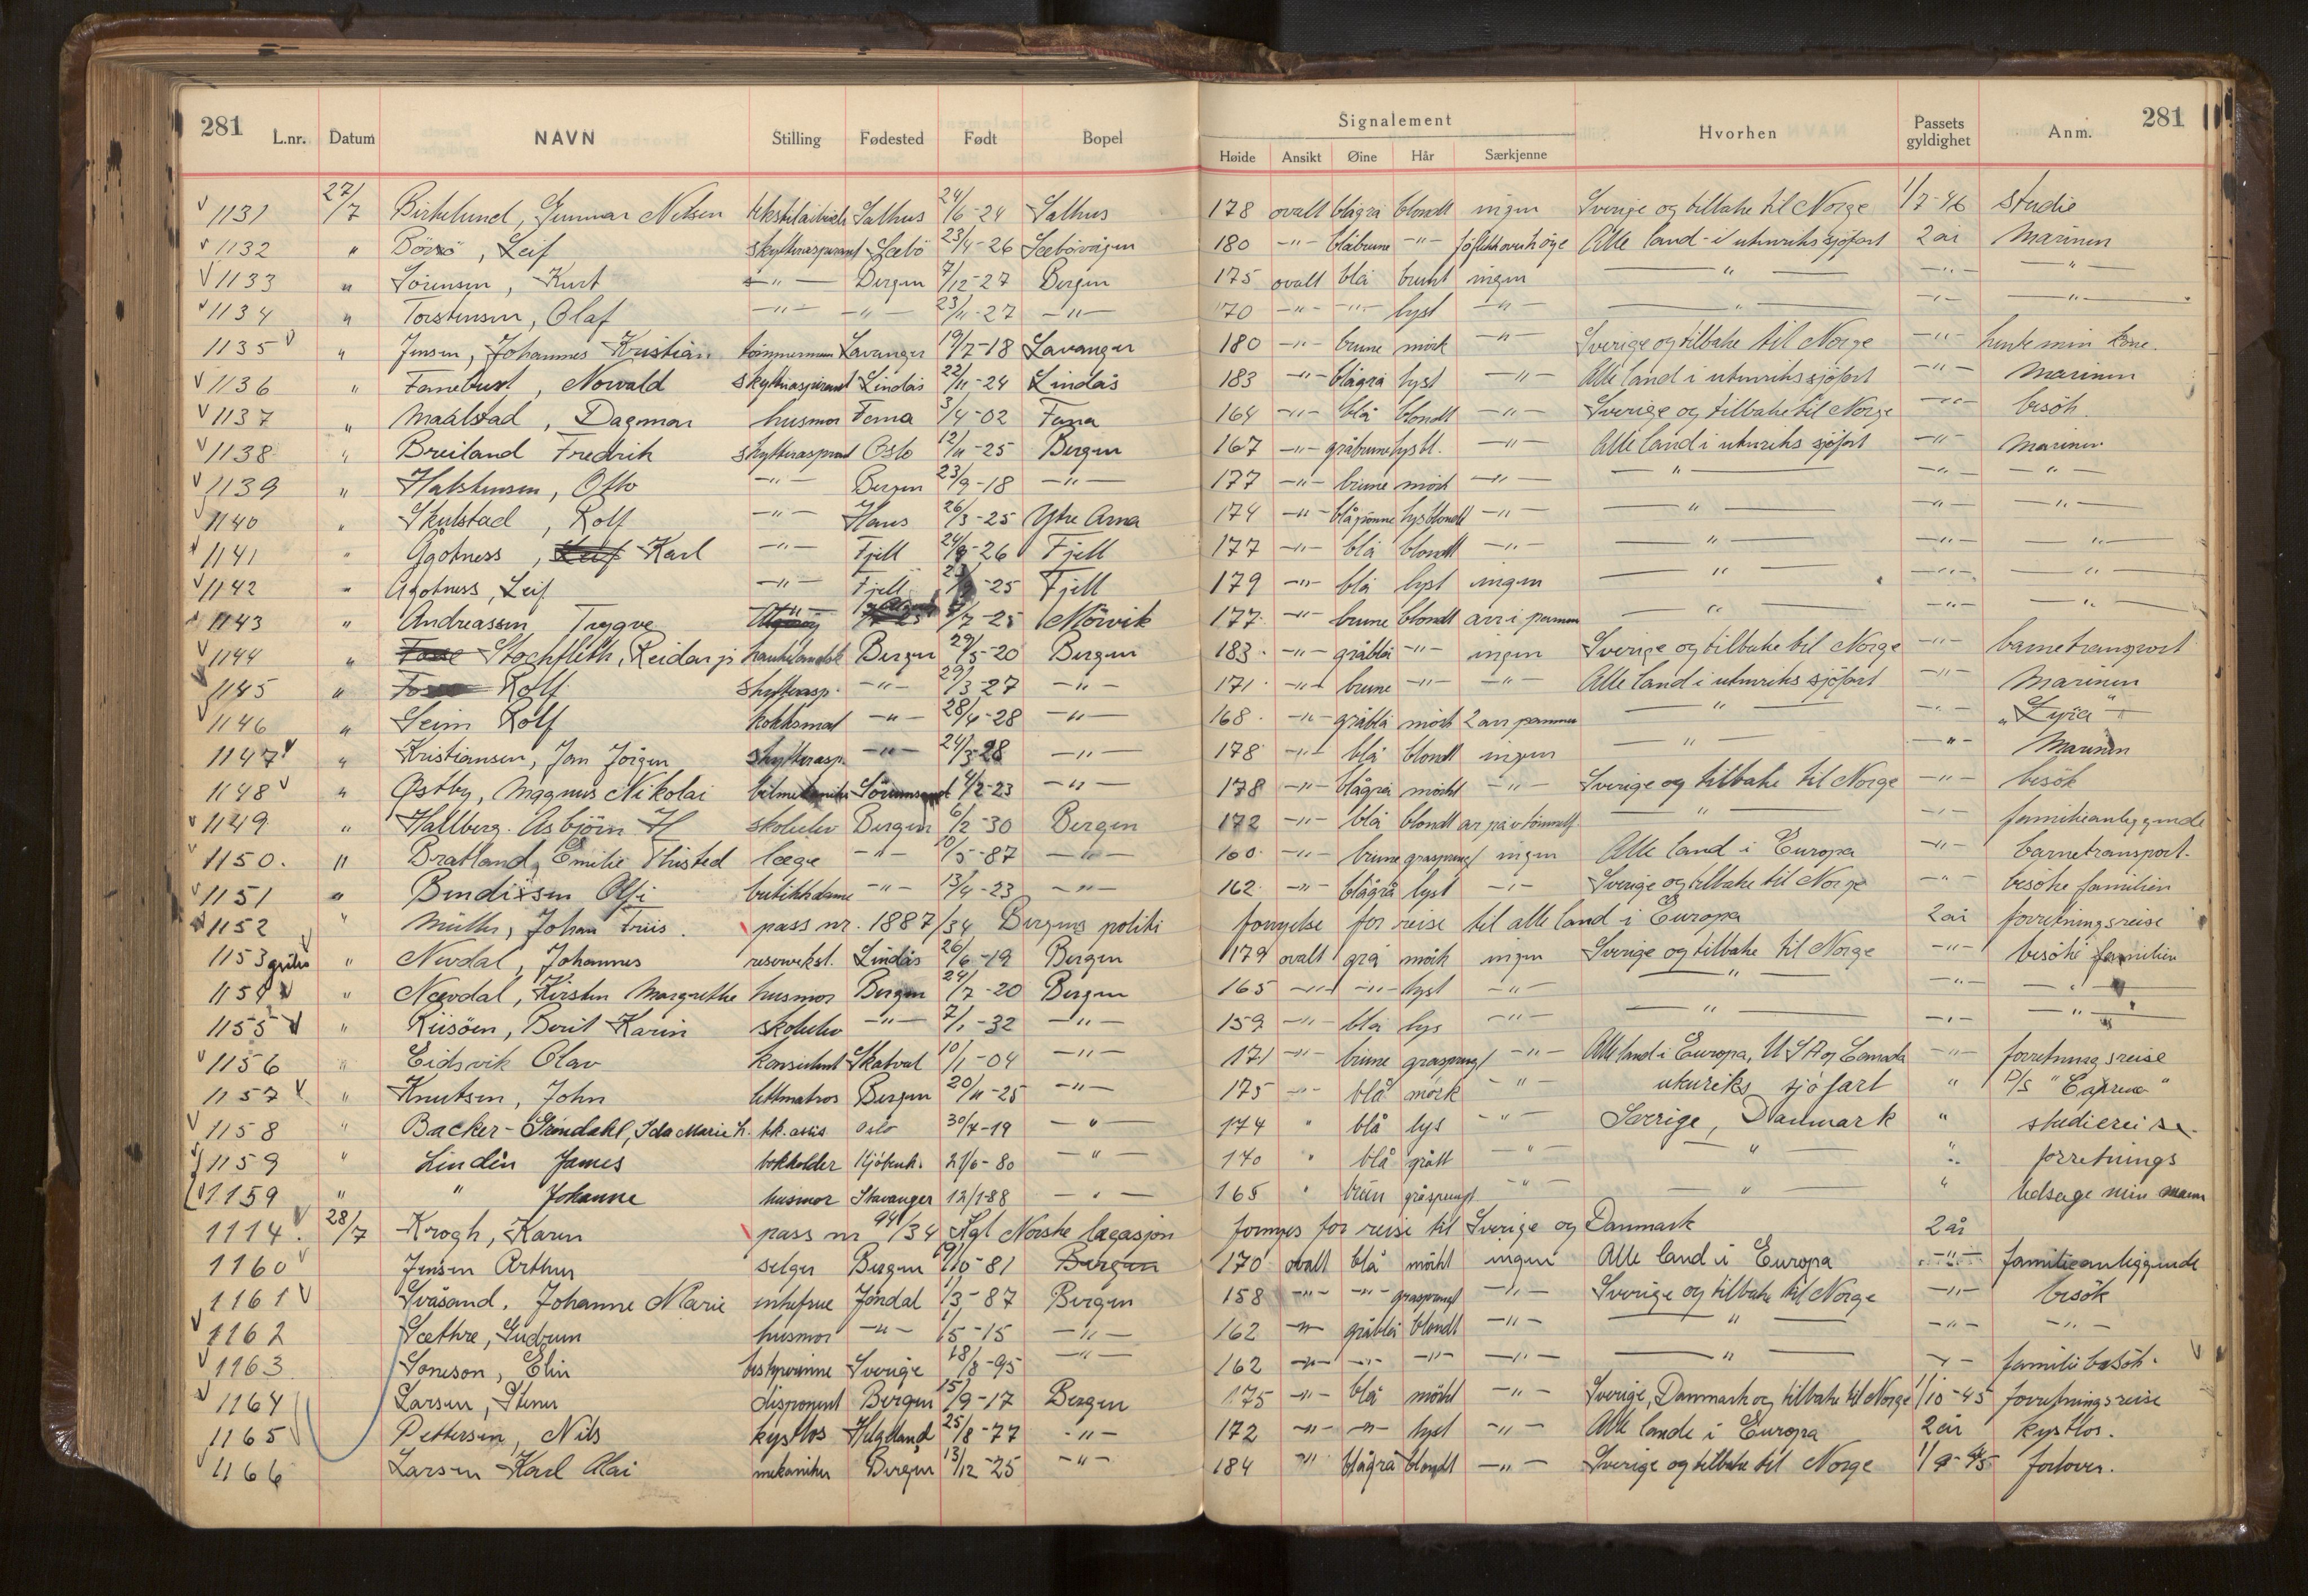 281 281
Signalement
L.nr. Datum NAVN Stilling Fødested Født Bopel Høide Ansikt Øine Hår Særkjenne Hvorhen Passets gyldighet Anm.
1131 27/7 Birkelund, Gunnar Nilsen Salhus 24/6-24 Salhus 178 ovalt blågrå blondt ingen Sverige og tilbake til Norge 1/7-46 studie
1132 " Leif skytteraspirant Sæbö 23/4-26 Sæbövågen 180 -"- blåbrune -"- Alle land i utenriks sjöfart 2 år Marinen
1133 " Sörensen, Kurt -"- Bergen 7/12-27 Bergen 175 ovalt blå brunt ingen -"- -"- -"-
1134 " Torstensen, Olaf -"- -"- 23/11-27 -"- 170 -"- -"- lyst -"- -"- -"- -"-
1135 " Jensen, Johannes Kristian tömmermann Lavanger 19/7-18 Lavanger 180 -"- brune mörk -"- Sverige og tilbake til Norge -"- hente min kone.
1136 " Fanebust, Norvald skytteraspirant Lindås 22/11-24 Lindås 183 -"- blågrå lyst -"- Alle land i utenriks sjöfart -"- Marinen
1137 " Maalstad, Dagmar husmor Fana 3/4-02 Fana 164 -"- blå blondt -"- Sverige og tilbake til Norge -"- besök.
1138 " Breiland Fredrik skytteraspirant Oslo 12/11-25 Bergen 167 -"- gråbrune lyst. -"- Alle land i utenriks sjöfart -"- Marinen
1139 " Halstensen, Otto -"- Bergen 23/9-18 -"- 177 -"- brune mörk -"- -"- -"- -"-
1140 " Skulstad, Rolf -"- Haus 26/3-25 Ytre Arna 174 -"- blågrönne lysblondt -"- -"- -"- -"-
1141 " Ågotness, Leif Karl -"- Fjell 24/9-26 Fjell 177 -"- blå blondt -"- -"- -"- -"-
1142 " Ågotness, Leif -"- Fjell -25 Fjell 179 -"- blå lyst ingen -"- -"- -"-
1143 " Andreassen Trygve 7/7-25 Mörvik 177 -"- brune blondt arr i pannen -"- -"- -"-
1144 " Stockfleth, Reidar jr Bergen 29/5-20 Bergen 183 -"- gråblå -"- ingen Sverige og tilbake til Norge -"- barnetransport
1145 " Rolf skytterasp. -"- 29/3-27 -"- 171 -"- brune -"- -"- Alle land i utenriks sjöfart -"- Marinen
1146 " Seim Rolf kokksmat -"- 28/4-28 -"- 168 -"- gråblå mörk 2 arr pannen -"- -"- "Lyra"
1147 " Kristiansen, Jan Jörgen skytterasp. -"- 24/3-28 -"- 178 -"- blå blondt ingen -"- -"- Marinen
1148 " Østby, Magnus Nikolai bilmekaniker Sörumsand 14/2-23 -"- 178 -"- blågrå mörkt -"- Sverige og tilbake til Norge -"- besök
1149 " Hallberg. Asbjörn H skoleelev Bergen 6/2-30 Bergen 172 -"- blå blondt -"- -"- familieanliggende
1150. " Bratland, Emilie Thisted læge -"- 10/5-87 -"- 160 -"- brune gråsprengt ingen Alle land i Europa -"- barnetransport.
1151 " Bendixsen Olfi butikkdame -"- 13/4-23 -"- 162 -"- blågrå lyst -"- Sverige og tilbake til Norge -"- besöke familien
1152 " Müller, Johan Friis. pass nr. 1887/34 Bergens politi fornyelse for reise til alle land i Europa 2 år forretningsreise
1153 gratis " Nævdal, Johannes Lindås 26/6-19 Bergen 179 ovalt grå mörk ingen Sverige og tilbake til Norge -"- besöke familien
1154 " Nævdal, Kirsten Margrethe husmor Bergen 24/7-20 Bergen 165 -"- -"- lyst -"- -"- -"- -"-
1155 " Riisöen, Berit Karin skoleelev -"- 7/1-32 -"- 159 -"- blå lys -"- -"- -"- -"-
1156 " Eidsvik Olav konsulent Skatval 10/1-04 -"- 171 -"- brune gråsprengt -"- Alle land i Europa, USA og Canada -"- forretningsreise
1157 " Knutsen, John lettmatros Bergen 20/11-25 -"- 175 -"- blå mörk -"- utenriks sjöfart "
1158 " Backer-Gröndahl, Ida Marie h. bk. assis Oslo 30/4-19 -"- 174 " blå lys -"- Sverige, Danmark " studiereise.
1159 " Lindén James bokholder Kjöbenh. 21/6-80 -"- 170 " blå grått -"- -"- " forretnings
1159 " " Johanne husmor Stavanger 12/1-88 -"- 165 " brun gråsprengt -"- -"- " ledsage min mann
1114. 28/7 Krogh, Karen pass nr 941/34 Kgl Norske legasjon fornyes for reise til Sverige og Danmark 2 år
1160 Jensen Arthur selger Bergen 9/10-81 Bergen 170 ovalt blå mörkt ingen Alle land i Europa -"- familieanliggende
1161 Svåsand, Johanne Marie enkefrue Jondal 1/3-87 Bergen 158 -"- -"- gråsprengt -"- Sverige og tilbake til Norge -"- besök
1162 Sæthre, Gudrun husmor -"- 1/5-15 -"- 162 -"- gråblå blondt -"- -"- -"- -"-
1163 Soneson, Elin bestyrerinne Sverige 18/8-95 -"- 162 -"- -"- -"- -"- -"- -"- familiebesök.
1164 Larsen, Stener disponent Bergen 15/9-17 Bergen 175 -"- blå mörkt -"- Sverige, Danmark og tilbake til Norge 1/10-45 forretningsreise
1165 Pettersen, Nils kystlos Helgeland 25/8-77 -"- 172 -"- -"- lyst -"- Alle lande i Europa 2 år kystlos.
1166 Larsen Karl Olai mekaniker Bergen 13/12-25 -"- 184 -"- blågrå blondt -"- Sverige og tilbake til Norge 1/9-45 forlover.